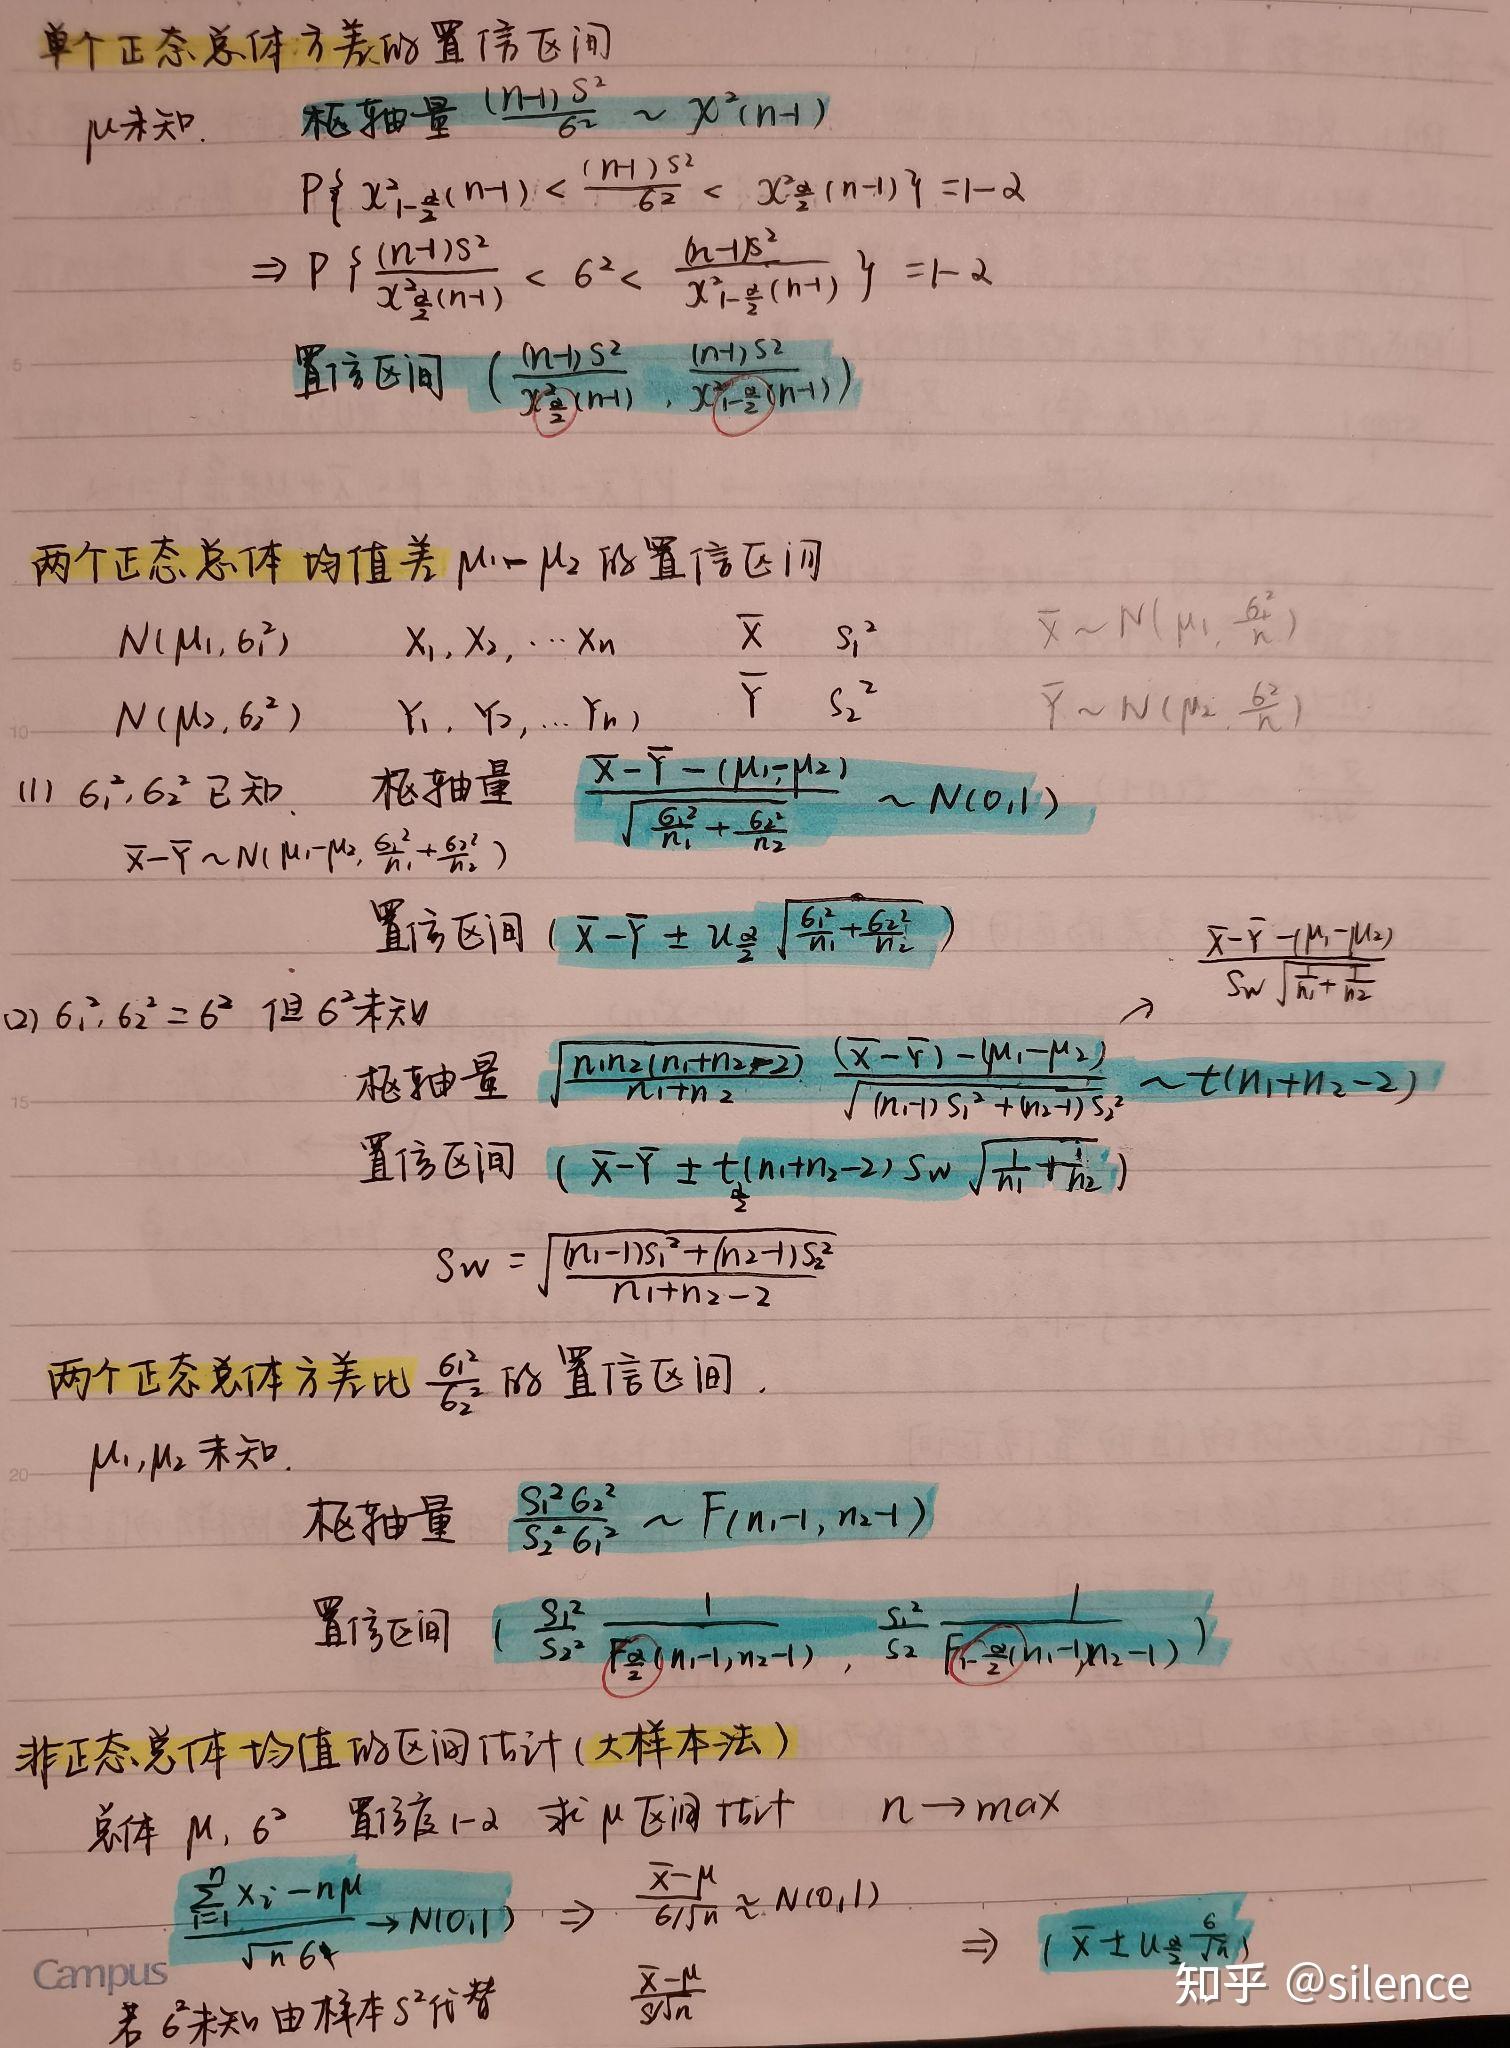 单个正态总体方差的置信区间
μ未知. 枢轴量 (n-1)S²/σ² ~ χ²(n-1)
P{χ²_{1-α/2}(n-1) < (n-1)S²/σ² < χ²_{α/2}(n-1)} = 1-α
⇒ P{(n-1)S²/χ²_{α/2}(n-1) < σ² < (n-1)S²/χ²_{1-α/2}(n-1)} = 1-α
5
置信区间 ((n-1)S²/χ²_{α/2}(n-1), (n-1)S²/χ²_{1-α/2}(n-1))
两个正态总体均值差 μ₁-μ₂ 的置信区间
N(μ₁, σ₁²) X₁, X₂, … Xn X̄ S₁² X̄ ~ N(μ₁, σ₁²/n)
10
N(μ₂, σ₂²) Y₁, Y₂, … Yn Ȳ S₂² Ȳ ~ N(μ₂, σ²/n)
(1) σ₁², σ₂² 已知. 枢轴量 X̄-Ȳ-(μ₁-μ₂)/√(σ₁²/n₁+σ₂²/n₂) ~ N(0,1)
X̄-Ȳ ~ N(μ₁-μ₂, σ₁²/n₁+σ₂²/n₂)
置信区间 (X̄-Ȳ ± u_{α/2} √(σ₁²/n₁+σ₂²/n₂))
X̄-Ȳ-(μ₁-μ₂)/Sw√(1/n₁+1/n₂)
(2) σ₁², σ₂² = σ² 但σ²未知 ↗
15
枢轴量 √(n₁n₂(n₁+n₂-2)/(n₁+n₂)) (X̄-Ȳ)-(μ₁-μ₂)/√((n₁-1)S₁²+(n₂-1)S₂²) ~ t(n₁+n₂-2)
置信区间 (X̄-Ȳ ± t_{α/2}(n₁+n₂-2) Sw √(1/n₁+1/n₂))
Sw = √((n₁-1)S₁²+(n₂-1)S₂²/(n₁+n₂-2))
两个正态总体方差比 σ₁²/σ₂² 的置信区间.
20
μ₁, μ₂ 未知.
枢轴量 S₁²σ₂²/S₂²σ₁² ~ F(n₁-1, n₂-1)
置信区间 (S₁²/S₂² 1/F_{α/2}(n₁-1, n₂-1), S₁²/S₂ 1/F_{1-α/2}(n₁-1, n₂-1))
非正态总体均值的区间估计(大样本法)
总体 μ, σ² 置信度1-α 求μ区间估计 n→max
∑_{i=1}^{n} Xi-nμ/√nσ → N(0,1) ⇒ X̄-μ/σ/√n ≈ N(0,1)
⇒ (X̄ ± u_{α/2} σ/√n)
Campus
若σ²未知由样本S²代替 X̄-μ/S/√n
知乎 @silence